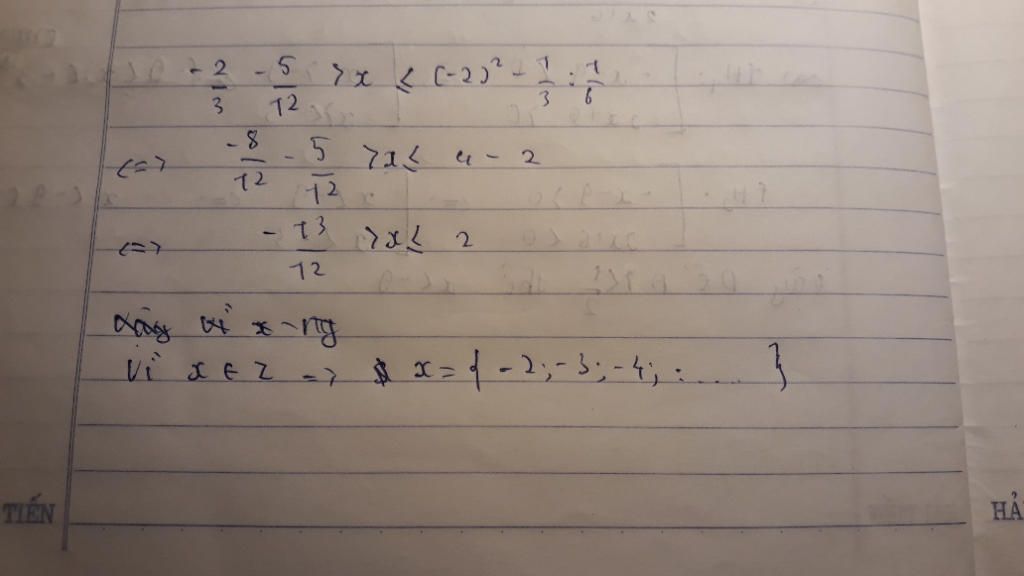 -2/3 - 5/12 > x ≤ (-2)² - 1/3 : 1/6
<=> -8/12 - 5/12 > x ≤ 4 - 2
<=> -13/12 > x ≤ 2
vì x
Vì x ∈ Z => x = { -2; -3; -4; ..... }
TIẾN
HẢ